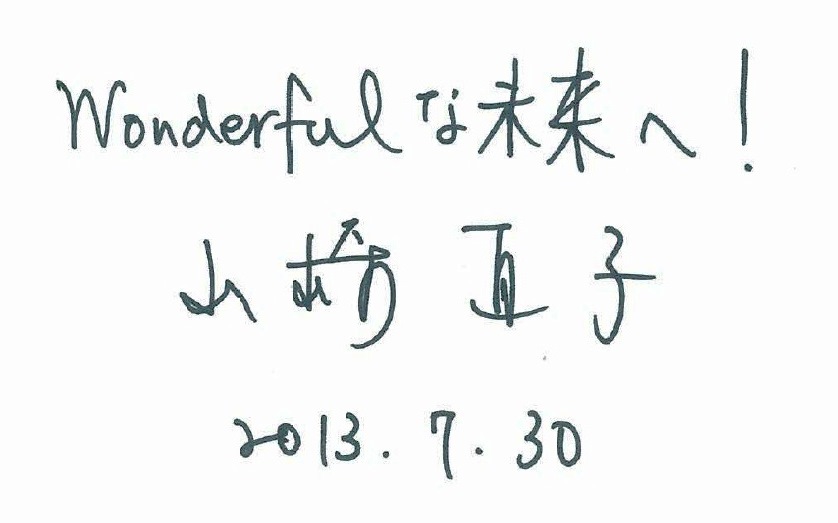 Wonderfulな未来へ!
山崎 直子
2013.7.30